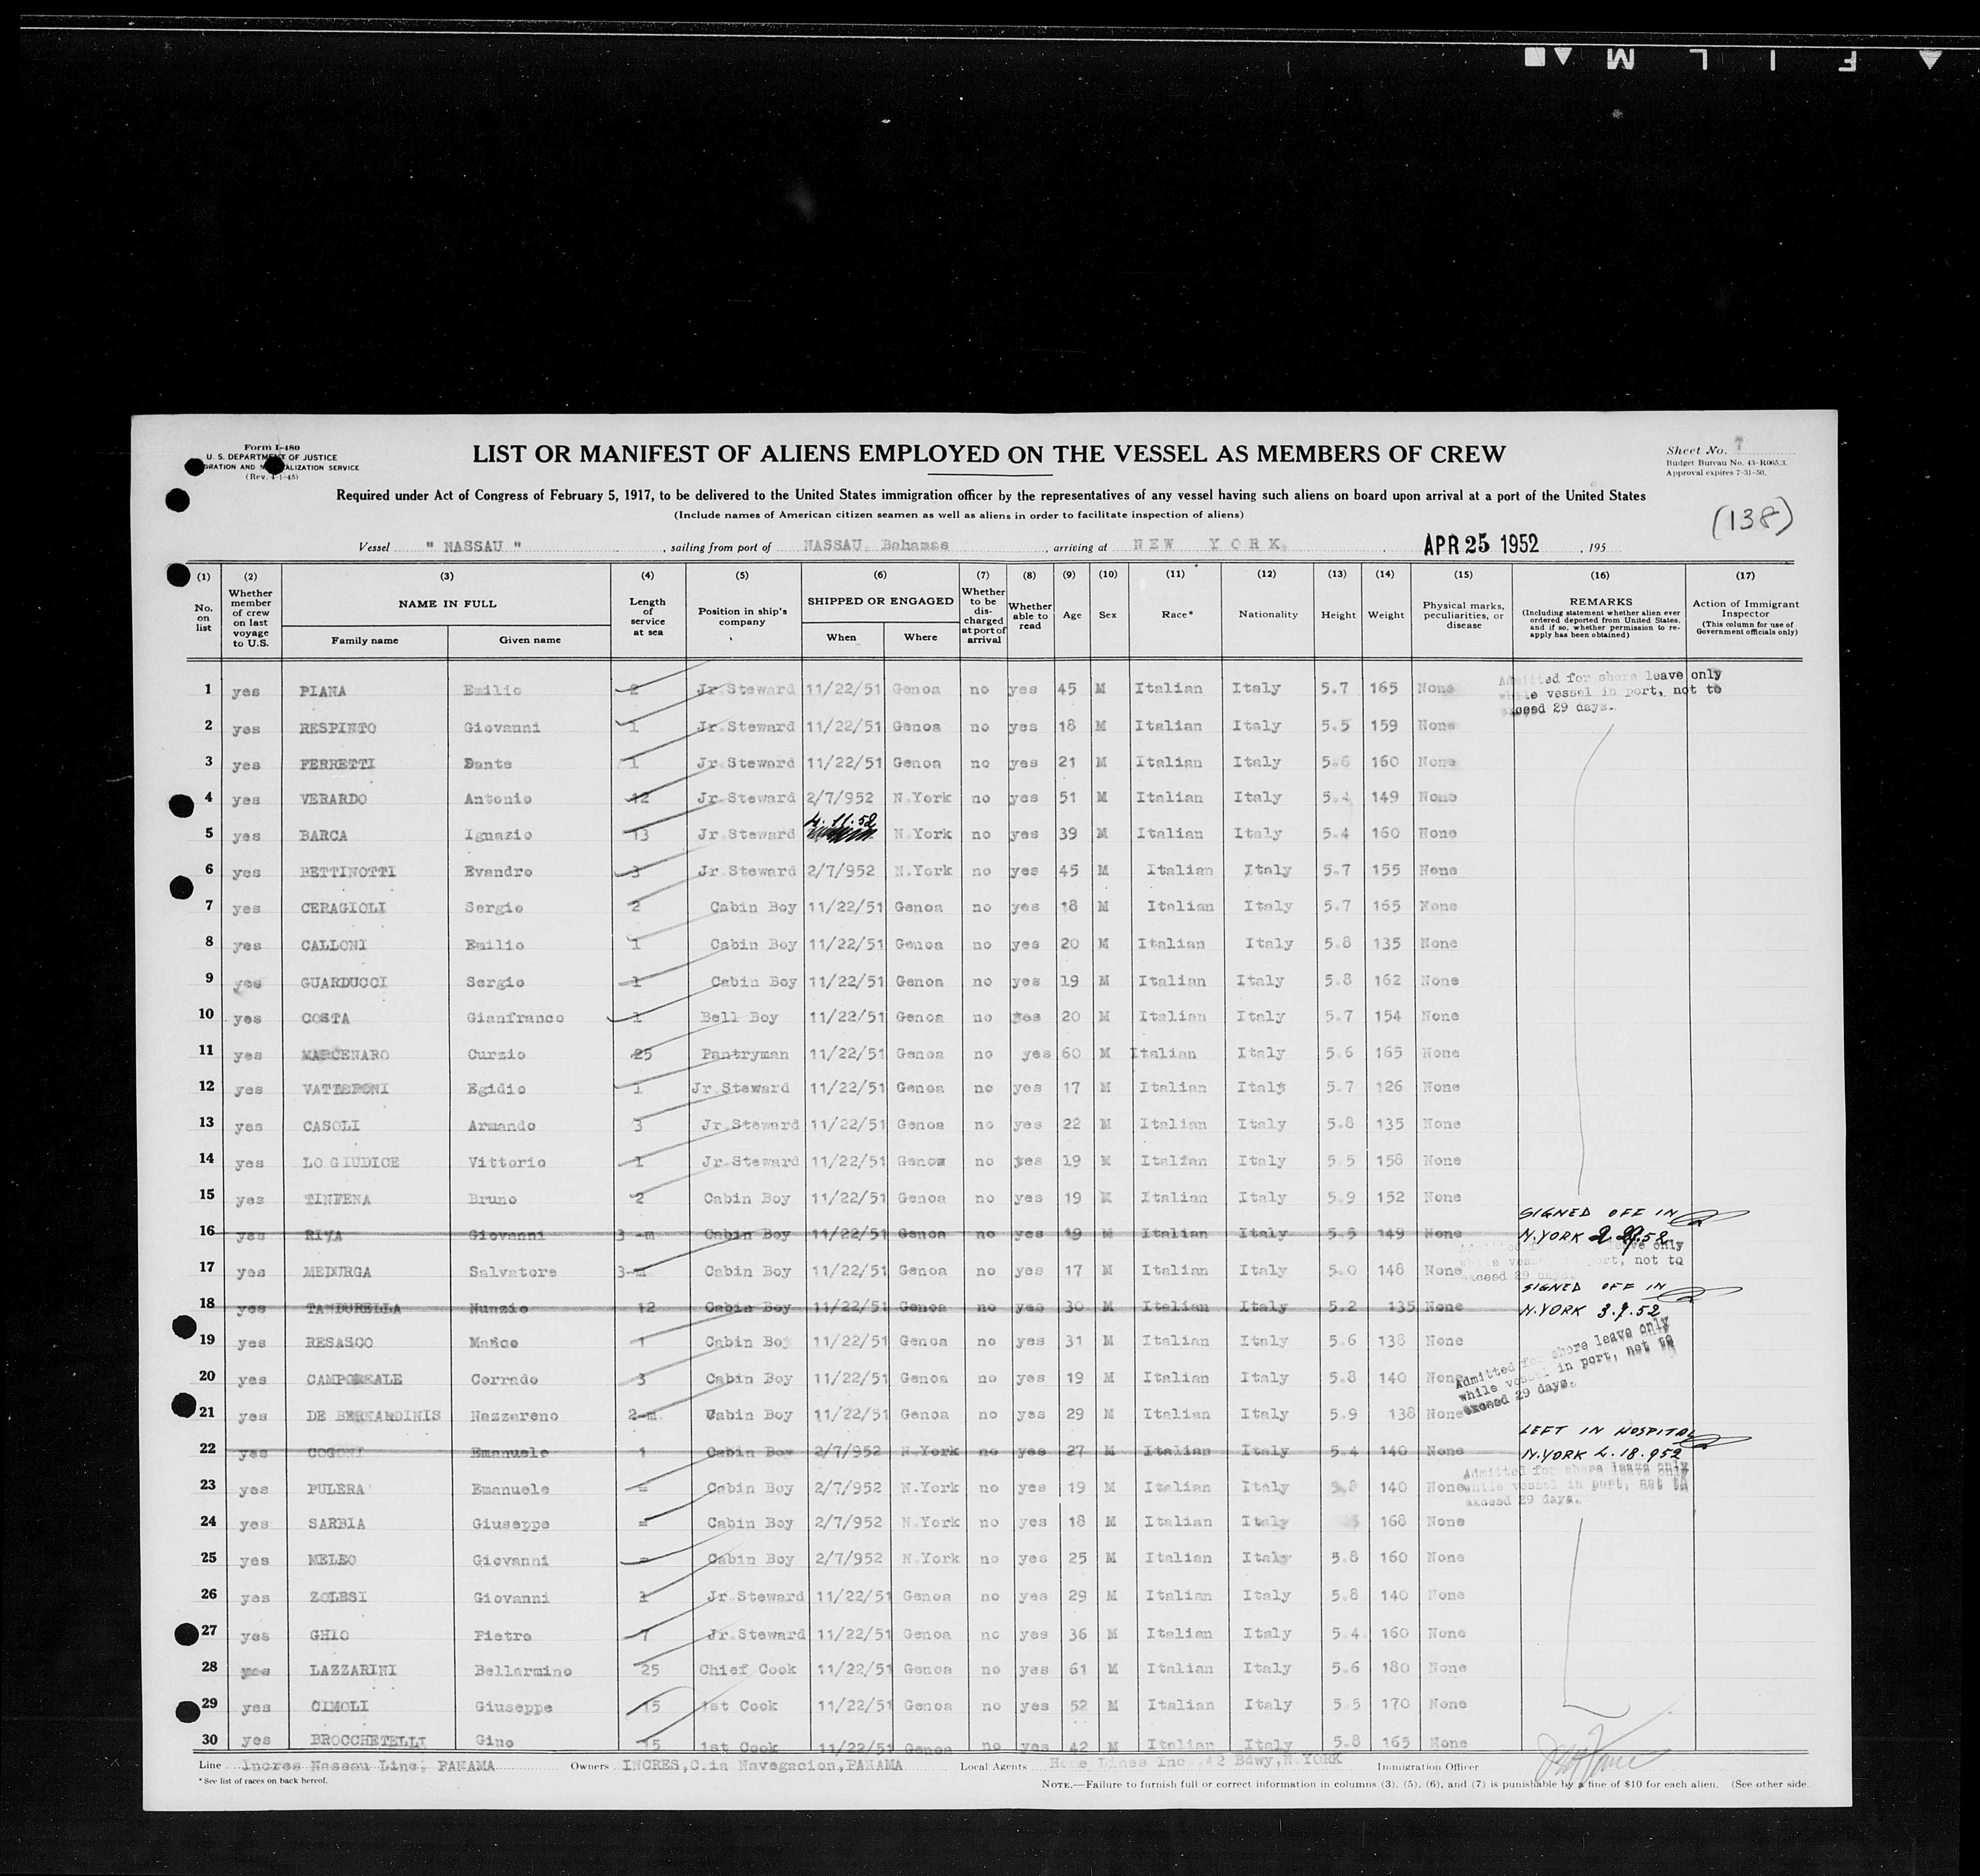 F I L M
Form I-480
U. S. DEPARTMENT OF JUSTICE
(Rev. 4-1-45)
LIST OR MANIFEST OF ALIENS EMPLOYED ON THE VESSEL AS MEMBERS OF CREW
Sheet No. 7
Budget Bureau No. 43-R065.3.
Approval expires 7-31-50.
Required under Act of Congress of February 5, 1917, to be delivered to the United States immigration officer by the representatives of any vessel having such aliens on board upon arrival at a port of the United States
(Include names of American citizen seamen as well as aliens in order to facilitate inspection of aliens)
(138)
Vessel " NASSAU " , sailing from port of NASSAU, Bahamas , arriving at NEW YORK. APR 25 1952 , 195
(1) (2) (3) (4) (5) (6) (7) (8) (9) (10) (11) (12) (13) (14) (15) (16) (17)
No. on list
Whether member of crew on last voyage to U.S.
NAME IN FULL
Family name
Given name
Length of service at sea
Position in ship's company
SHIPPED OR ENGAGED
When
Where
Whether to be discharged at port of arrival
Whether able to read
Age
Sex
Race*
Nationality
Height
Weight
Physical marks, peculiarities, or disease
REMARKS
(Including statement whether alien ever ordered deported from United States, and if so, whether permission to reapply has been obtained)
Action of Immigrant Inspector
(This column for use of Government officials only)
1 yes PIANA Emilio 2 Jr.Steward 11/22/51 Genoa no yes 45 M Italian Italy 5.7 165 None
Admitted for shore leave only
while vessel in port, not to
exceed 29 days.
2 yes RESPINTO Giovanni 1 Jr.Steward 11/22/51 Genoa no yes 18 M Italian Italy 5.5 159 None
3 yes FERRETTI Dante 1 Jr.Steward 11/22/51 Genoa no yes 21 M Italian Italy 5.6 160 None
4 yes VERARDO Antonio 12 Jr.Steward 2/7/952 N.York no yes 51 M Italian Italy 5.4 149 None
5 yes BARCA Ignazio 13 Jr.Steward 4.11.52 N.York no yes 39 M Italian Italy 5.4 160 None
6 yes BETTINOTTI Evandro 3 Jr.Steward 2/7/952 N.York no yes 45 M Italian Italy 5.7 155 None
7 yes CERAGIOLI Sergio 2 Cabin Boy 11/22/51 Genoa no yes 18 M Italian Italy 5.7 165 None
8 yes CALLONI Emilio 1 Cabin Boy 11/22/51 Genoa no yes 20 M Italian Italy 5.8 135 None
9 yes GUARDUCCI Sergio 1 Cabin Boy 11/22/51 Genoa no yes 19 M Italian Italy 5.8 162 None
10 yes COSTA Gianfranco 1 Bell Boy 11/22/51 Genoa no yes 20 M Italian Italy 5.7 154 None
11 yes MARCENARO Curzio 25 Pantryman 11/22/51 Genoa no yes 60 M Italian Italy 5.6 165 None
12 yes VATTERONI Egidio 1 Jr.Steward 11/22/51 Genoa no yes 17 M Italian Italy 5.7 126 None
13 yes CASOLI Armando 3 Jr.Steward 11/22/51 Genoa no yes 22 M Italian Italy 5.8 135 None
14 yes LO GIUDICE Vittorio 1 Jr.Steward 11/22/51 Genoa no yes 19 M Italian Italy 5.5 158 None
15 yes TINFENA Bruno 2 Cabin Boy 11/22/51 Genoa no yes 19 M Italian Italy 5.9 152 None
SIGNED OFF IN
16 yes RIVA Giovanni 3 -m Cabin Boy 11/22/51 Genoa no yes 19 M Italian Italy 5.5 149 None N.YORK 2.29.52
Admitted for shore leave only
while vessel in port, not to
exceed 29 days.
17 yes MEDURGA Salvatore 3-m Cabin Boy 11/22/51 Genoa no yes 17 M Italian Italy 5.0 148 None
SIGNED OFF IN
18 yes TAMBURELLA Nunzio 12 Cabin Boy 11/22/51 Genoa no yes 30 M Italian Italy 5.2 135 None N.YORK 3.7.52
19 yes RESASCO Marco 1 Cabin Boy 11/22/51 Genoa no yes 31 M Italian Italy 5.6 138 None
Admitted for shore leave only
while vessel in port, not to
exceed 29 days.
20 yes CAMPOREALE Corrado 3 Cabin Boy 11/22/51 Genoa no yes 19 M Italian Italy 5.8 140 None
21 yes DE BERNARDINIS Nazzareno 2-m. Cabin Boy 11/22/51 Genoa no yes 29 M Italian Italy 5.9 138 None
LEFT IN HOSPITAL
22 yes COGONI Emanuele 1 Cabin Boy 2/7/952 N.York no yes 27 M Italian Italy 5.4 140 None N.YORK 4.18.952
Admitted for shore leave only
while vessel in port, not to
exceed 29 days.
23 yes PULERA Emanuele - Cabin Boy 2/7/952 N.York no yes 19 M Italian Italy 5.8 140 None
24 yes SARBIA Giuseppe - Cabin Boy 2/7/952 N.York no yes 18 M Italian Italy 168 None
25 yes MELEO Giovanni - Cabin Boy 2/7/952 N.York no yes 25 M Italian Italy 5.8 160 None
26 yes ZOLESI Giovanni 1 Jr.Steward 11/22/51 Genoa no yes 29 M Italian Italy 5.8 140 None
27 yes GHIO Pietro 7 Jr.Steward 11/22/51 Genoa no yes 36 M Italian Italy 5.4 160 None
28 yes LAZZARINI Bellarmino 25 Chief Cook 11/22/51 Genoa no yes 61 M Italian Italy 5.6 180 None
29 yes CIMOLI Giuseppe 15 1st Cook 11/22/51 Genoa no yes 52 M Italian Italy 5.5 170 None
30 yes BROCCHETELLI Gino 15 1st Cook 11/22/51 Genoa no yes 42 M Italian Italy 5.8 165 None
Line Incres Nassau Line, PANAMA Owners INCRES,C.ia Navegacion,PANAMA Local Agents Home Lines Inc.,42 Bdwy,N.YORK Immigration Officer
* See list of races on back hereof.
NOTE.—Failure to furnish full or correct information in columns (3), (5), (6), and (7) is punishable by a fine of $10 for each alien. (See other side.